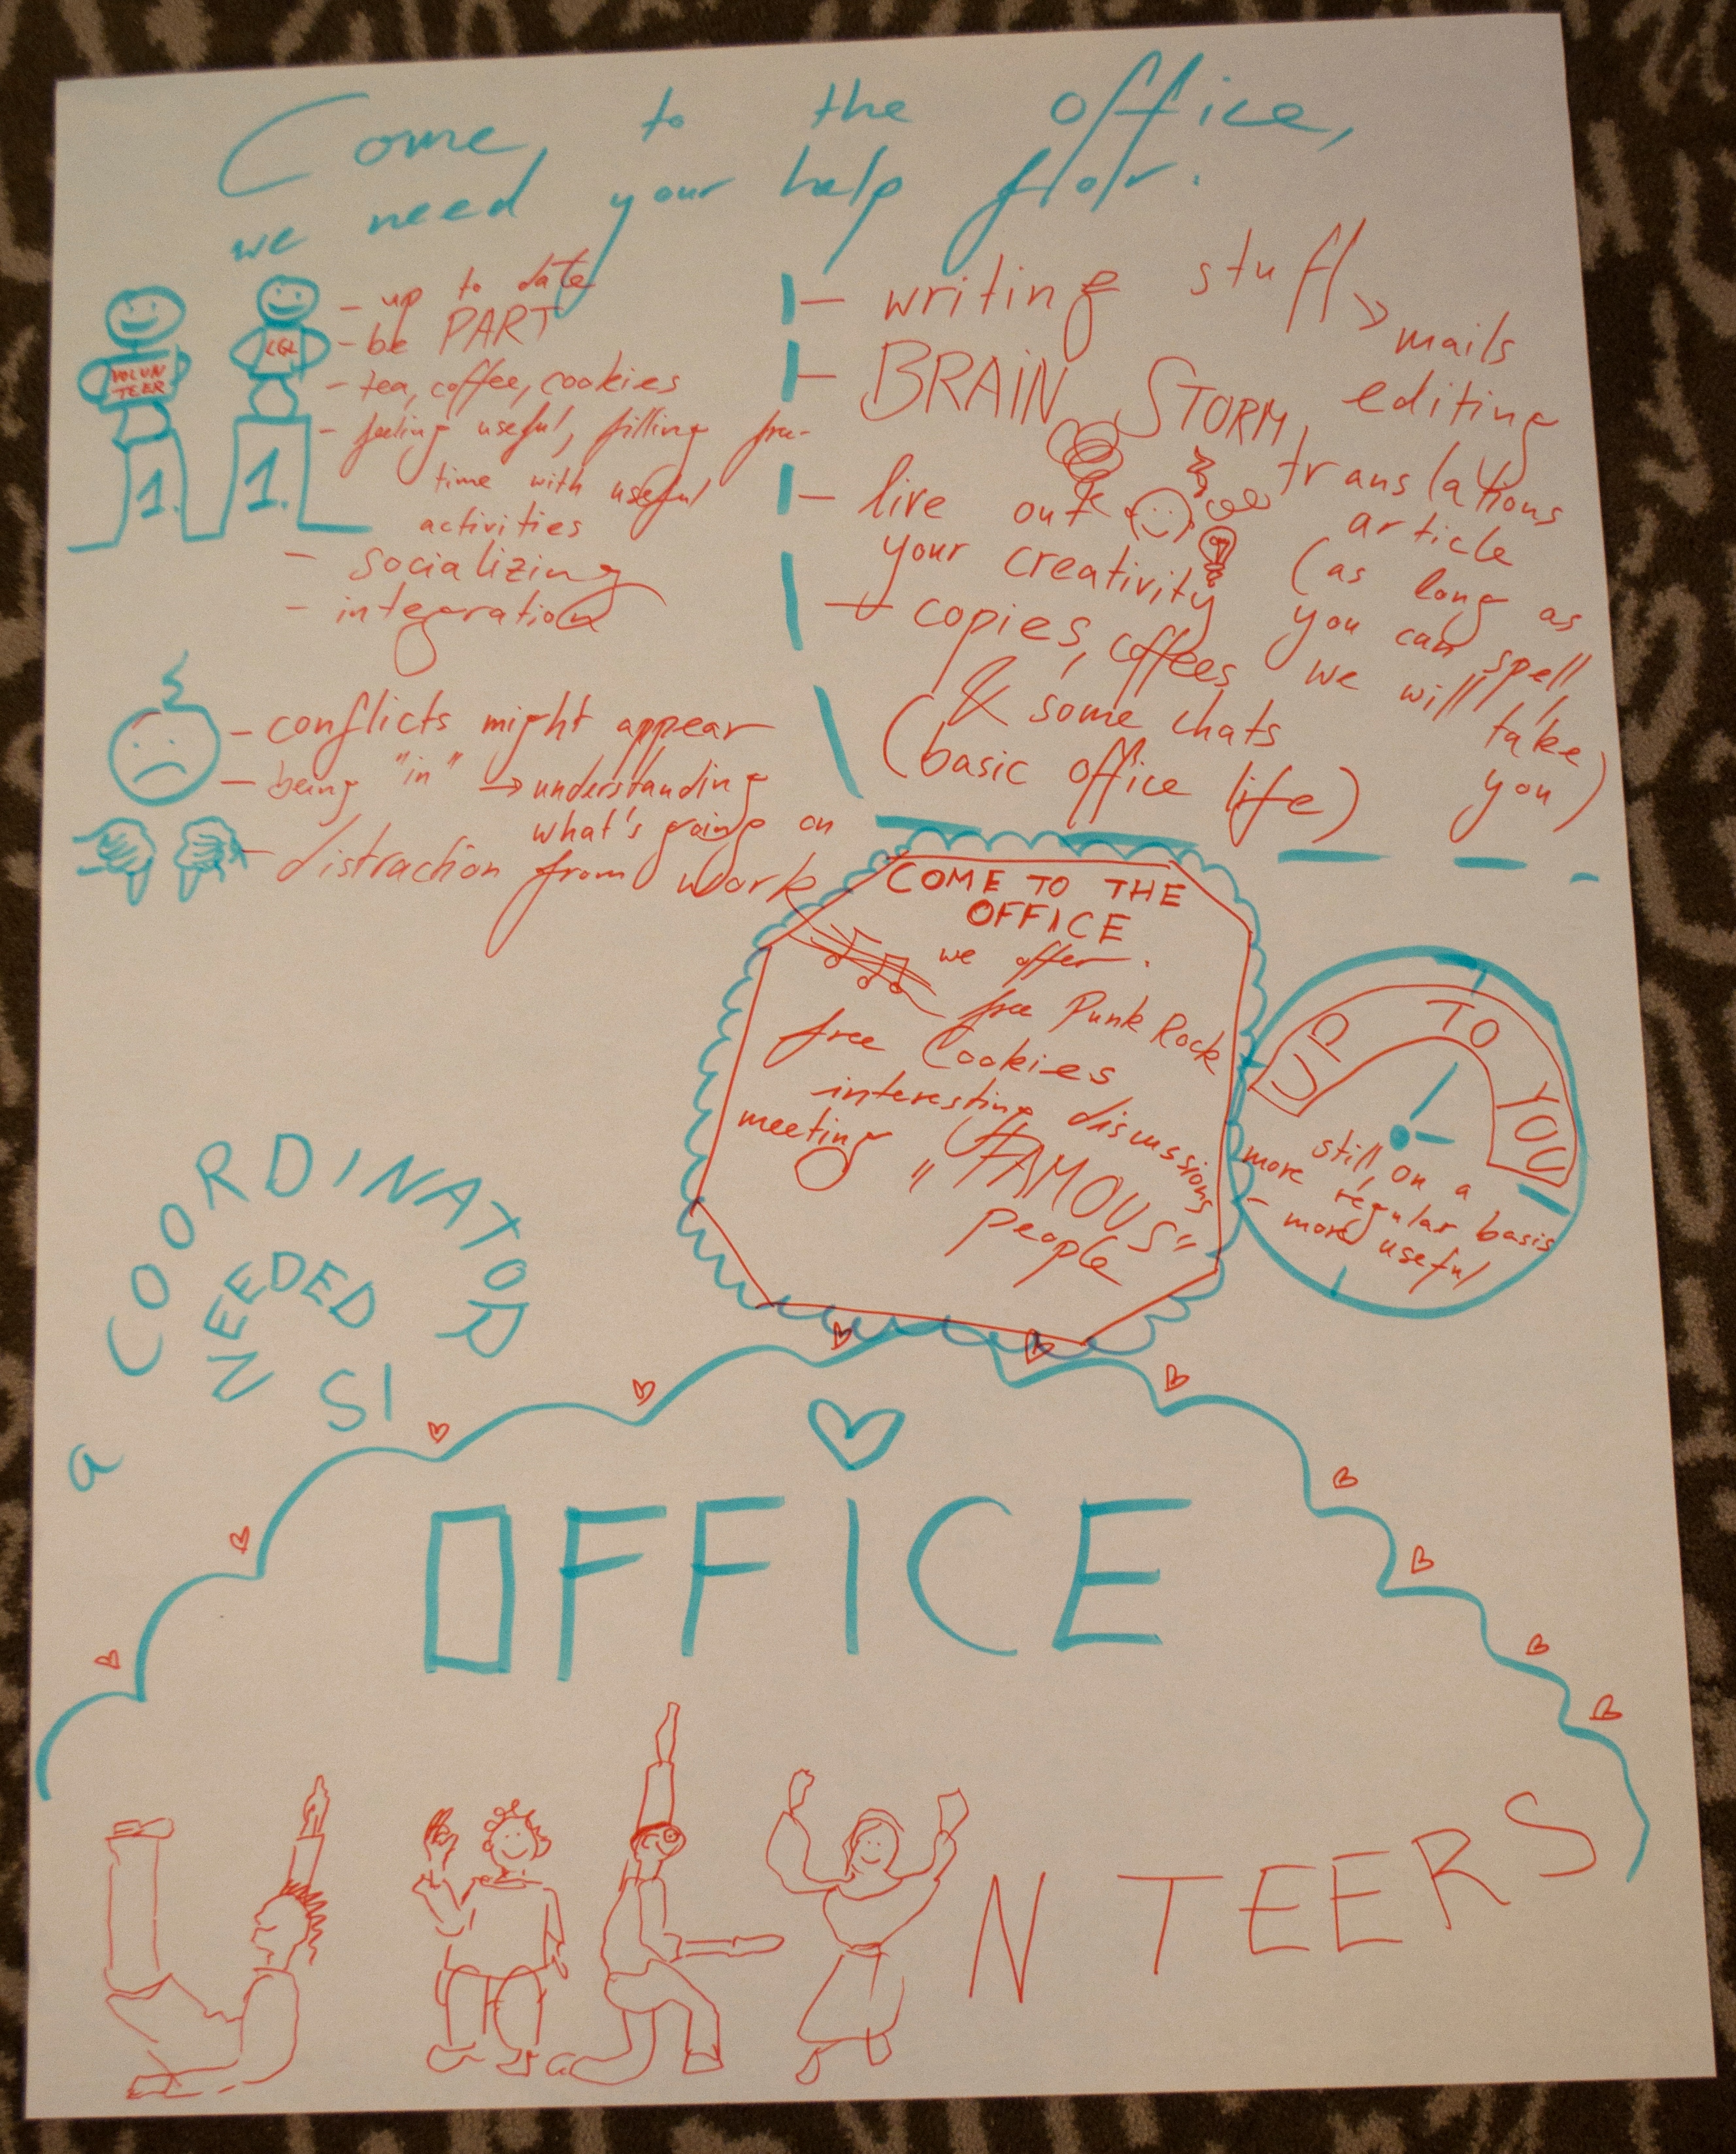 Come to the office,
we need your help for:
VOLUN
TEER
1.
1.
- up to date
- be PART
- tea, coffee, cookies
- feeling useful, filling free-
time with useful
activities
- socializing
- integration
- conflicts might appear
- being "in" → understanding
what's going on
- distraction from work
- writing stuff >> mails
editing
translations
article
(as long as
you can spell,
we will take
you)
- BRAIN STORM
- live out
your creativity
- copies, coffees
& some chats
(basic office life)
COME TO THE
OFFICE
we offer:
free Punk Rock
free Cookies
interesting discussions
meeting "FAMOUS"
people
UP TO YOU
still, on a
more regular basis
- more useful
a COORDINATOR
IS
NEEDED
OFFICE
VOLUNTEERS